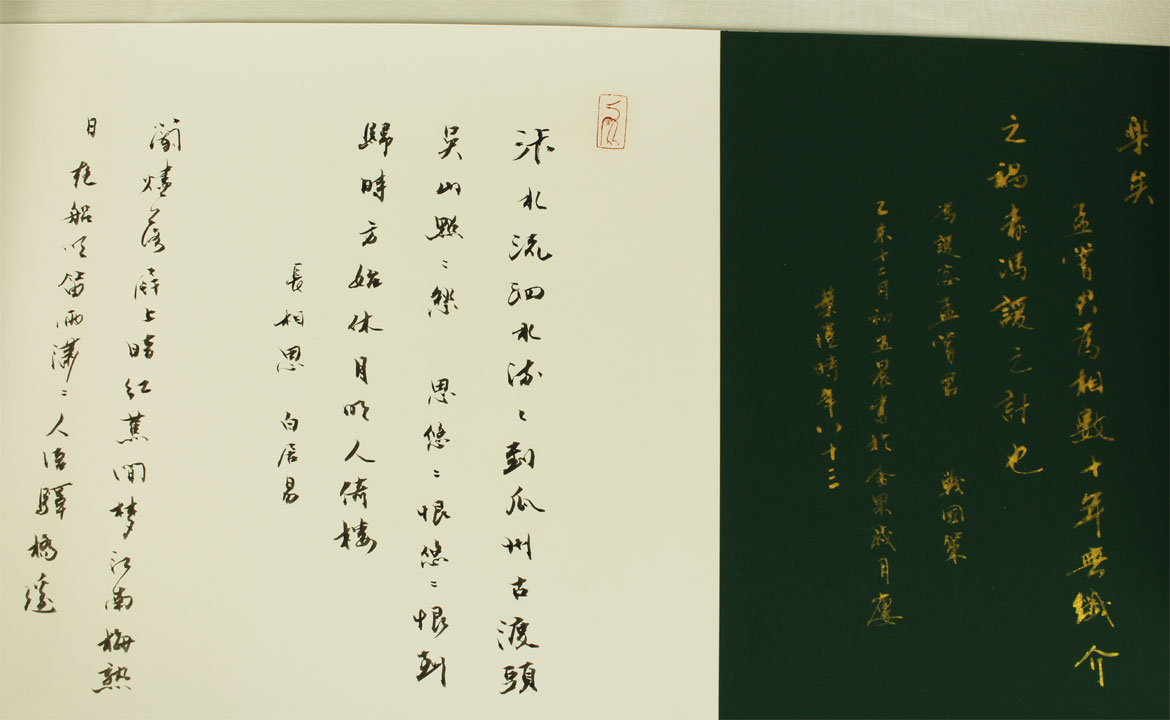 樂矣
孟嘗君為相數十年無纖介
之禍者馮諼之計也
馮諼客孟嘗君 戰國策
乙未十二月初五晨書於金果歲月廔
葉漢時年八十三
汴水流泗水流〻到瓜州古渡頭
吳山點〻愁 思悠〻恨悠〻恨到
歸時方始休月明人倚樓
長相思 白居易
蘭燼落屏上暗紅蕉閒夢江南梅熟
日 夜船吹笛雨瀟〻人語驛橋邊